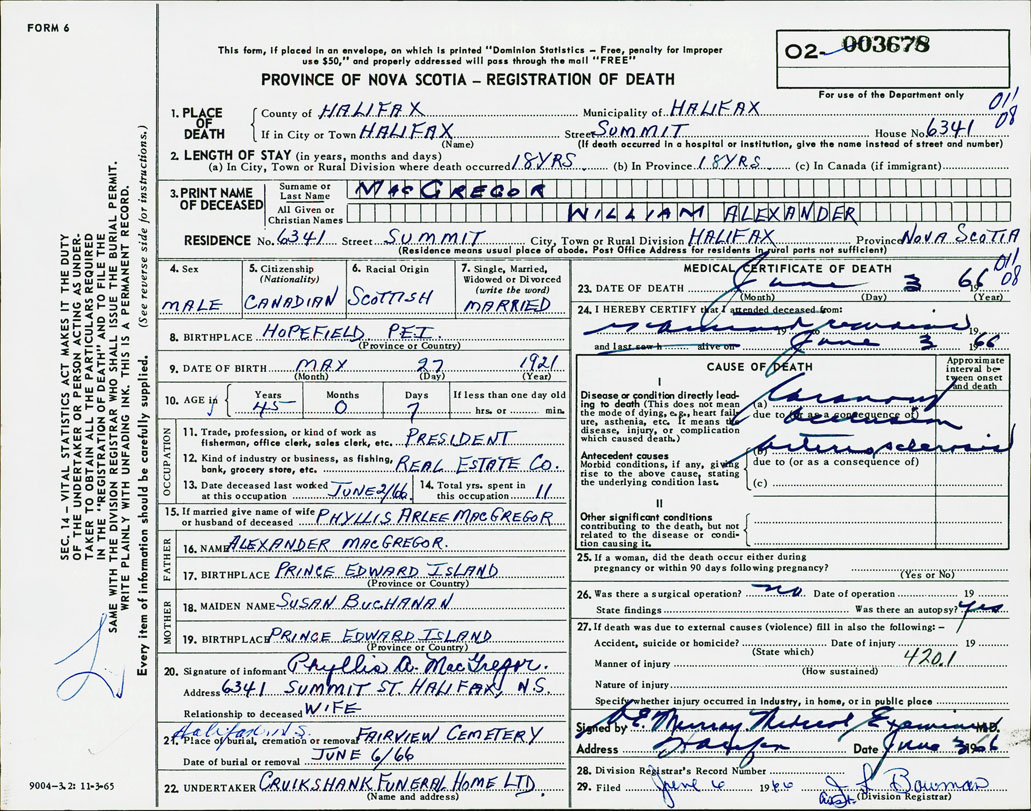 FORM 6
This form, if placed in an envelope, on which is printed "Dominion Statistics – Free, penalty for improper
use $50," and properly addressed will pass through the mail "FREE"
PROVINCE OF NOVA SCOTIA – REGISTRATION OF DEATH
O2- 003678
For use of the Department only
011
08
1. PLACE OF DEATH
County of HALIFAX Municipality of HALIFAX
If in City or Town HALIFAX Street SUMMIT House No. 6341
(Name) (If death occurred in a hospital or institution, give the name instead of street and number)
2. LENGTH OF STAY (in years, months and days)
(a) In City, Town or Rural Division where death occurred 18 YRS (b) In Province 18 YRS (c) In Canada (if immigrant)
3. PRINT NAME OF DECEASED
Surname or Last Name MACGREGOR
All Given or Christian Names WILLIAM ALEXANDER
RESIDENCE No. 6341 Street SUMMIT City, Town or Rural Division HALIFAX Province NOVA SCOTIA
(Residence means usual place of abode. Post Office Address for residents in rural parts not sufficient)
4. Sex
MALE
5. Citizenship
(Nationality)
CANADIAN
6. Racial Origin
SCOTTISH
7. Single, Married,
Widowed or Divorced
(write the word)
MARRIED
8. BIRTHPLACE HOPEFIELD P.E.I.
(Province or Country)
9. DATE OF BIRTH MAY 27 1921
(Month) (Day) (Year)
10. AGE in
Years Months Days If less than one day old
45 0 7 hrs. or min.
OCCUPATION
11. Trade, profession, or kind of work as
fisherman, office clerk, sales clerk, etc. PRESIDENT
12. Kind of industry or business, as fishing,
bank, grocery store, etc. REAL ESTATE CO.
13. Date deceased last worked
at this occupation JUNE 2/66
14. Total yrs. spent in
this occupation 11
15. If married give name of wife
or husband of deceased PHYLLIS ARLEE MACGREGOR
FATHER
16. NAME ALEXANDER MACGREGOR.
17. BIRTHPLACE PRINCE EDWARD ISLAND
(Province or Country)
MOTHER
18. MAIDEN NAME SUSAN BUCHANAN
19. BIRTHPLACE PRINCE EDWARD ISLAND
(Province or Country)
20. Signature of informant Phyllis A. MacGregor.
Address 6341 SUMMIT ST. HALIFAX, N.S.
Relationship to deceased WIFE
Halifax, N.S.
21. Place of burial, cremation or removal FAIRVIEW CEMETERY
Date of burial or removal JUNE 6/66
22. UNDERTAKER CRUIKSHANK FUNERAL HOME LTD.
(Name and address)
MEDICAL CERTIFICATE OF DEATH
011
08
23. DATE OF DEATH June 3 1966
(Month) (Day) (Year)
24. I HEREBY CERTIFY that I attended deceased from:
19
and last saw h alive on June 3 1966
CAUSE OF DEATH
Approximate
interval be-
tween onset
and death
I
Disease or condition directly lead-
ing to death (This does not mean
the mode of dying, e.g., heart fail-
ure, asthenia, etc. It means the
disease, injury, or complication
which caused death.)
(a) Coronary
due to (or as a consequence of)
occlusion
Antecedent causes
Morbid conditions, if any, giving
rise to the above cause, stating
the underlying condition last.
(b) arteriosclerosis
due to (or as a consequence of)
(c)
II
Other significant conditions
contributing to the death, but not
related to the disease or condi-
tion causing it.
25. If a woman, did the death occur either during
pregnancy or within 90 days following pregnancy?
(Yes or No)
26. Was there a surgical operation? no Date of operation 19
State findings Was there an autopsy? yes
27. If death was due to external causes (violence) fill in also the following: –
Accident, suicide or homicide? Date of injury 19
(State which)
420.1
Manner of injury
(How sustained)
Nature of injury
Specify whether injury occurred in industry, in home, or in public place
Signed by Murray Medical Examiner M.D.
Address Halifax Date June 3 1966
28. Division Registrar's Record Number
29. Filed June 6 1966 Bowman
Asst. (Division Registrar)
SEC. 14 – VITAL STATISTICS ACT MAKES IT THE DUTY
OF THE UNDERTAKER OR PERSON ACTING AS UNDER-
TAKER TO OBTAIN ALL THE PARTICULARS REQUIRED
IN THE "REGISTRATION OF DEATH" AND TO FILE THE
SAME WITH THE DIVISION REGISTRAR WHO SHALL ISSUE THE BURIAL PERMIT.
WRITE PLAINLY WITH UNFADING INK. THIS IS A PERMANENT RECORD.
Every item of information should be carefully supplied. (See reverse side for instructions.)
9004–3.2: 11-3-65